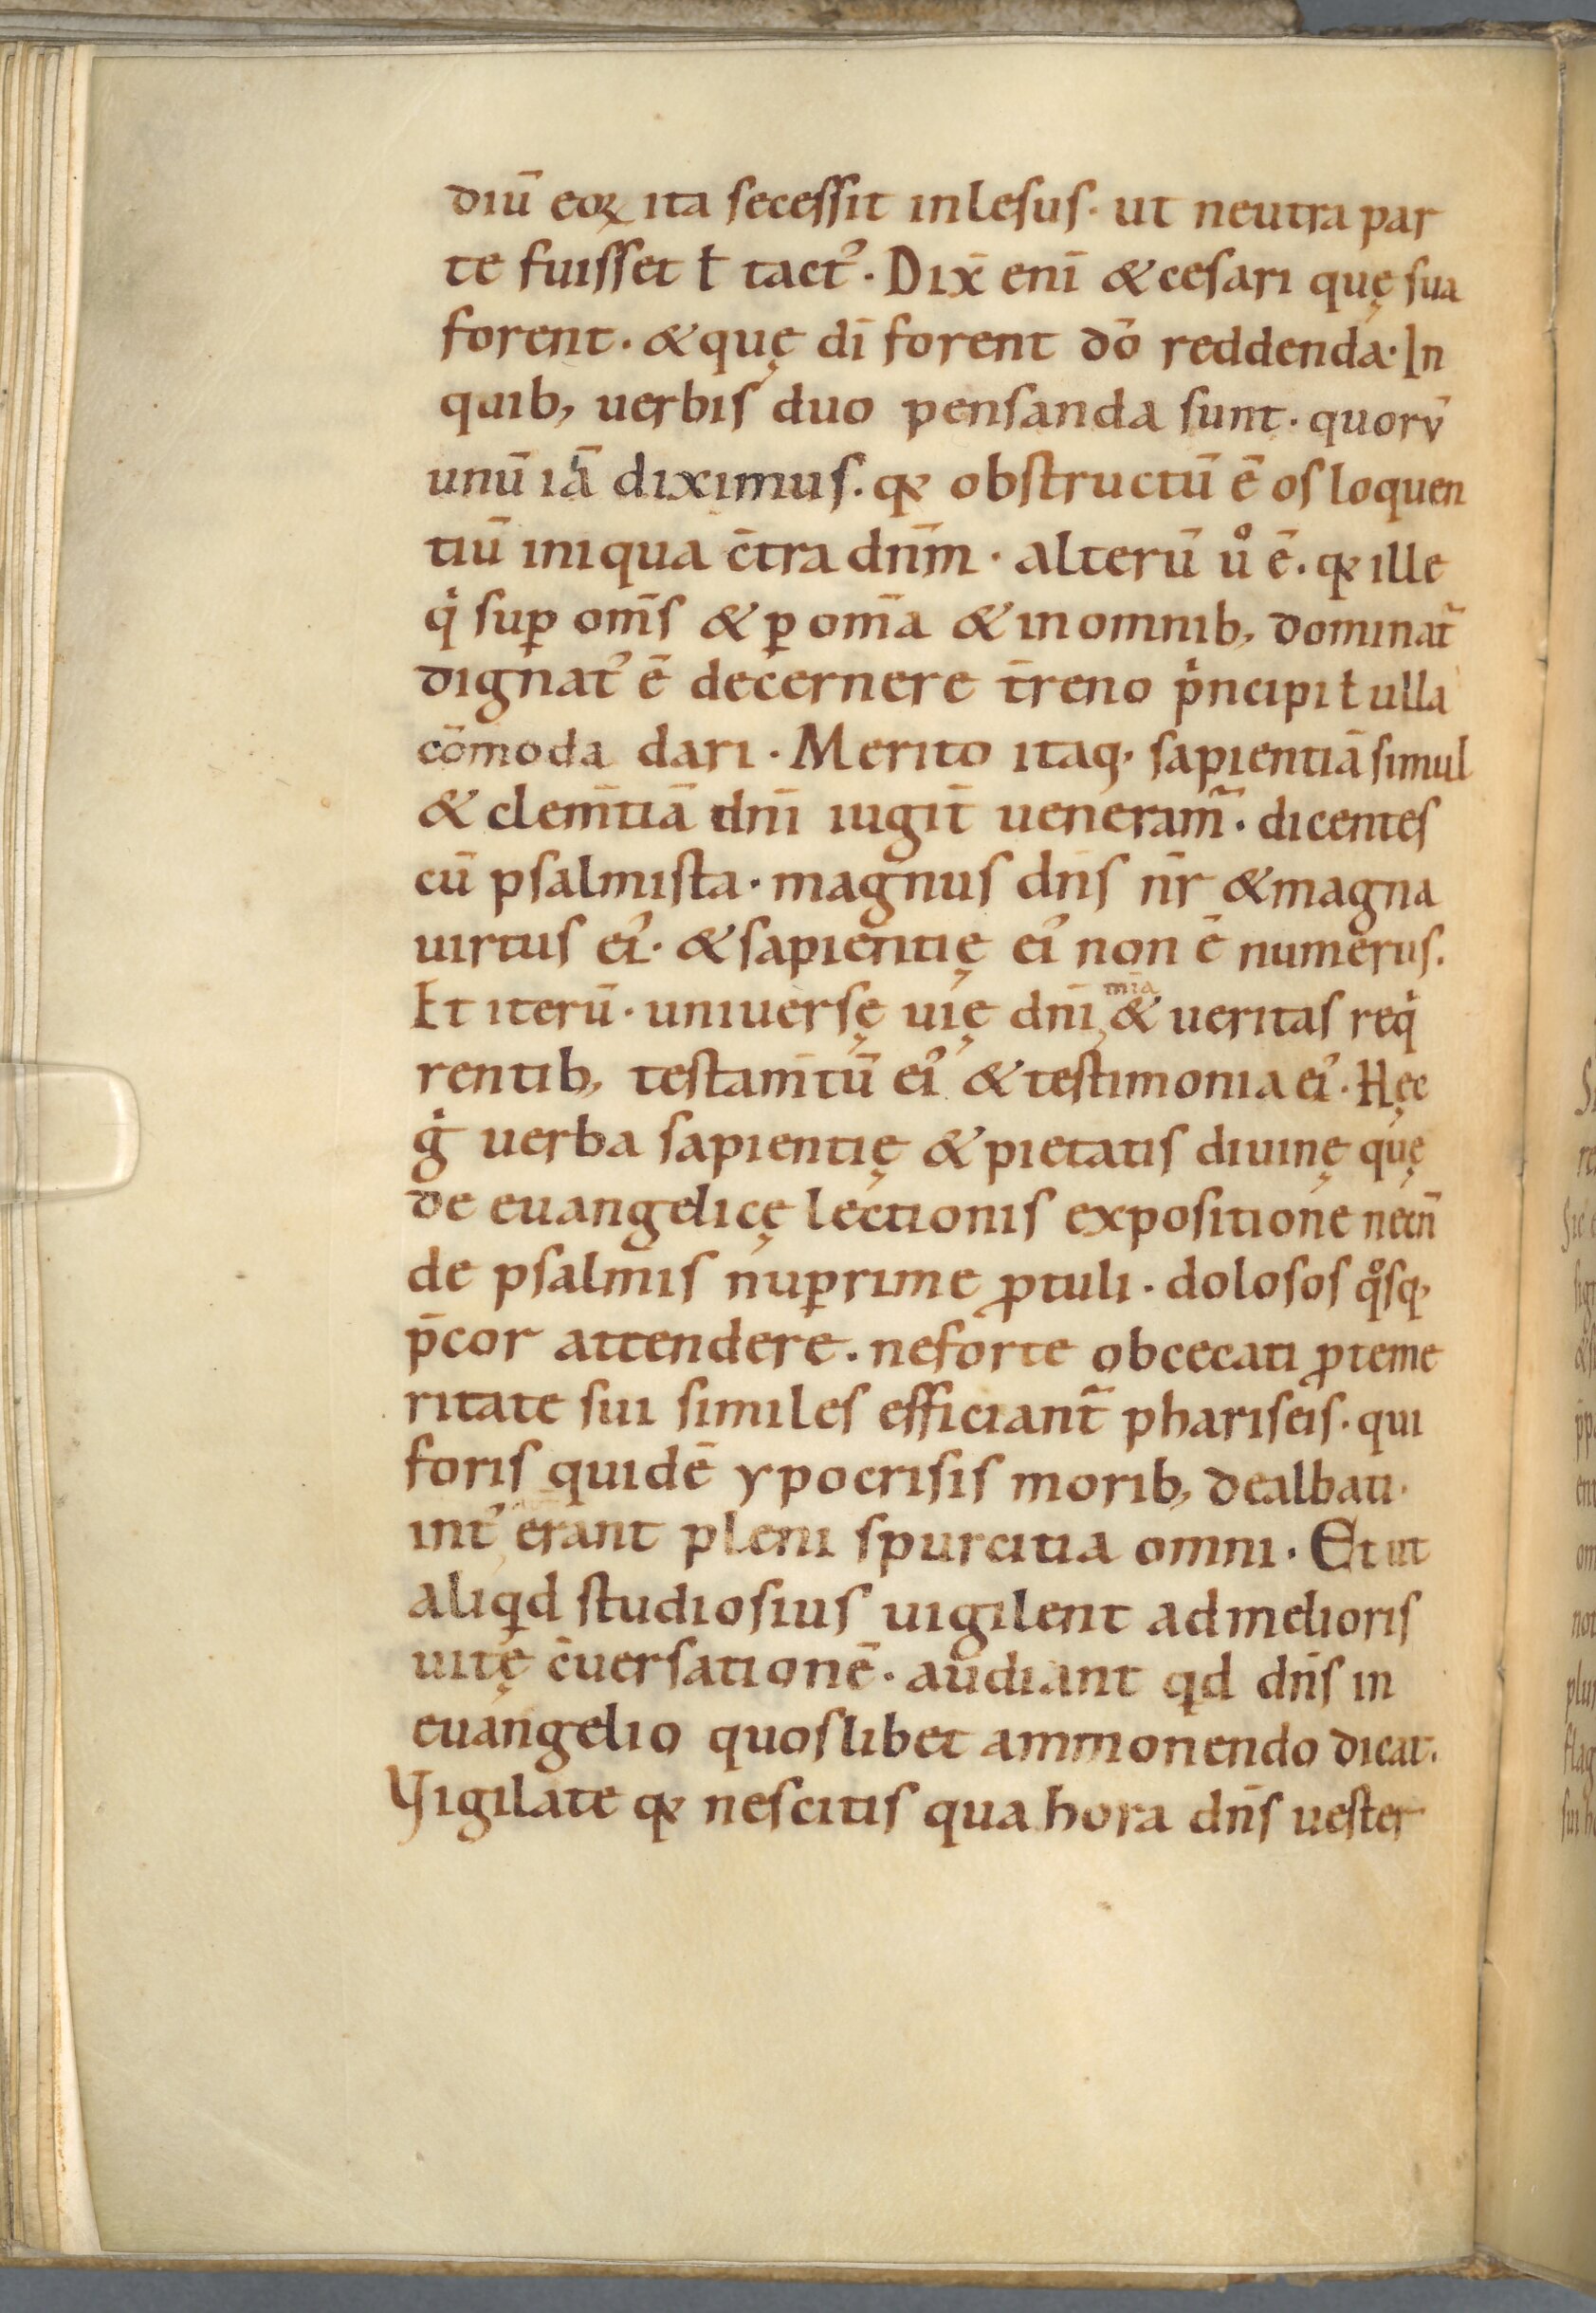 diū eoꝝ ita secessit inlesus· ut neutra par
te fuisset ƚ tactꝰ· Dix̄ enī & cesari quę sua
forent· & quę dī forent dō reddenda· In
quib; uerbis duo pensanda sunt· quorū
unū iā diximus· qꝛ obstructū ē os loquen
tiū iniqua c̄tra dnm̄· alterū uͦ ē· qꝛ ille
qͥ suꝑ om̄s & ꝑ om̄a & in omnib; dominat᷑
dignatꝰ ē decernere t̄reno pͥncipi ƚ ulla
cōmoda dari· Merito itaq; sapientiā simul
& clem̄tiā dnī iugit̄ ueneram᷑· dicentes
cū psalmista· magnus dn̄s nr̄ & magna
uirtus eiꝰ· & sapientię eiꝰ non ē numerus.
Et iterū· uniuersę uię dnī, mīa & ueritas reqͥ
rentib; testam̄tū eiꝰ & testimonia eiꝰ· Hęc
gͥ uerba sapientię & pietatis diuinę quę
de euangelicę lectionis expositione necn̄
de psalmis nuꝑrime ꝓtuli· dolosos qͦsq;
p̄cor attendere· ne forte obcecati ꝓ teme
ritate sui similes efficiant᷑ phariseis· qui
foris quidē ypocrisis morib; dealbati·
intꝰ erant pleni spurcitia omni· Et ut
aliqͥd studiosius uigilent ad melioris
uitę c̄uersationē· audiant qd dn̄s in
euangelio quoslibet ammonendo dicat·
Vigilate qꝛ nescitis qua hora dn̄s uester